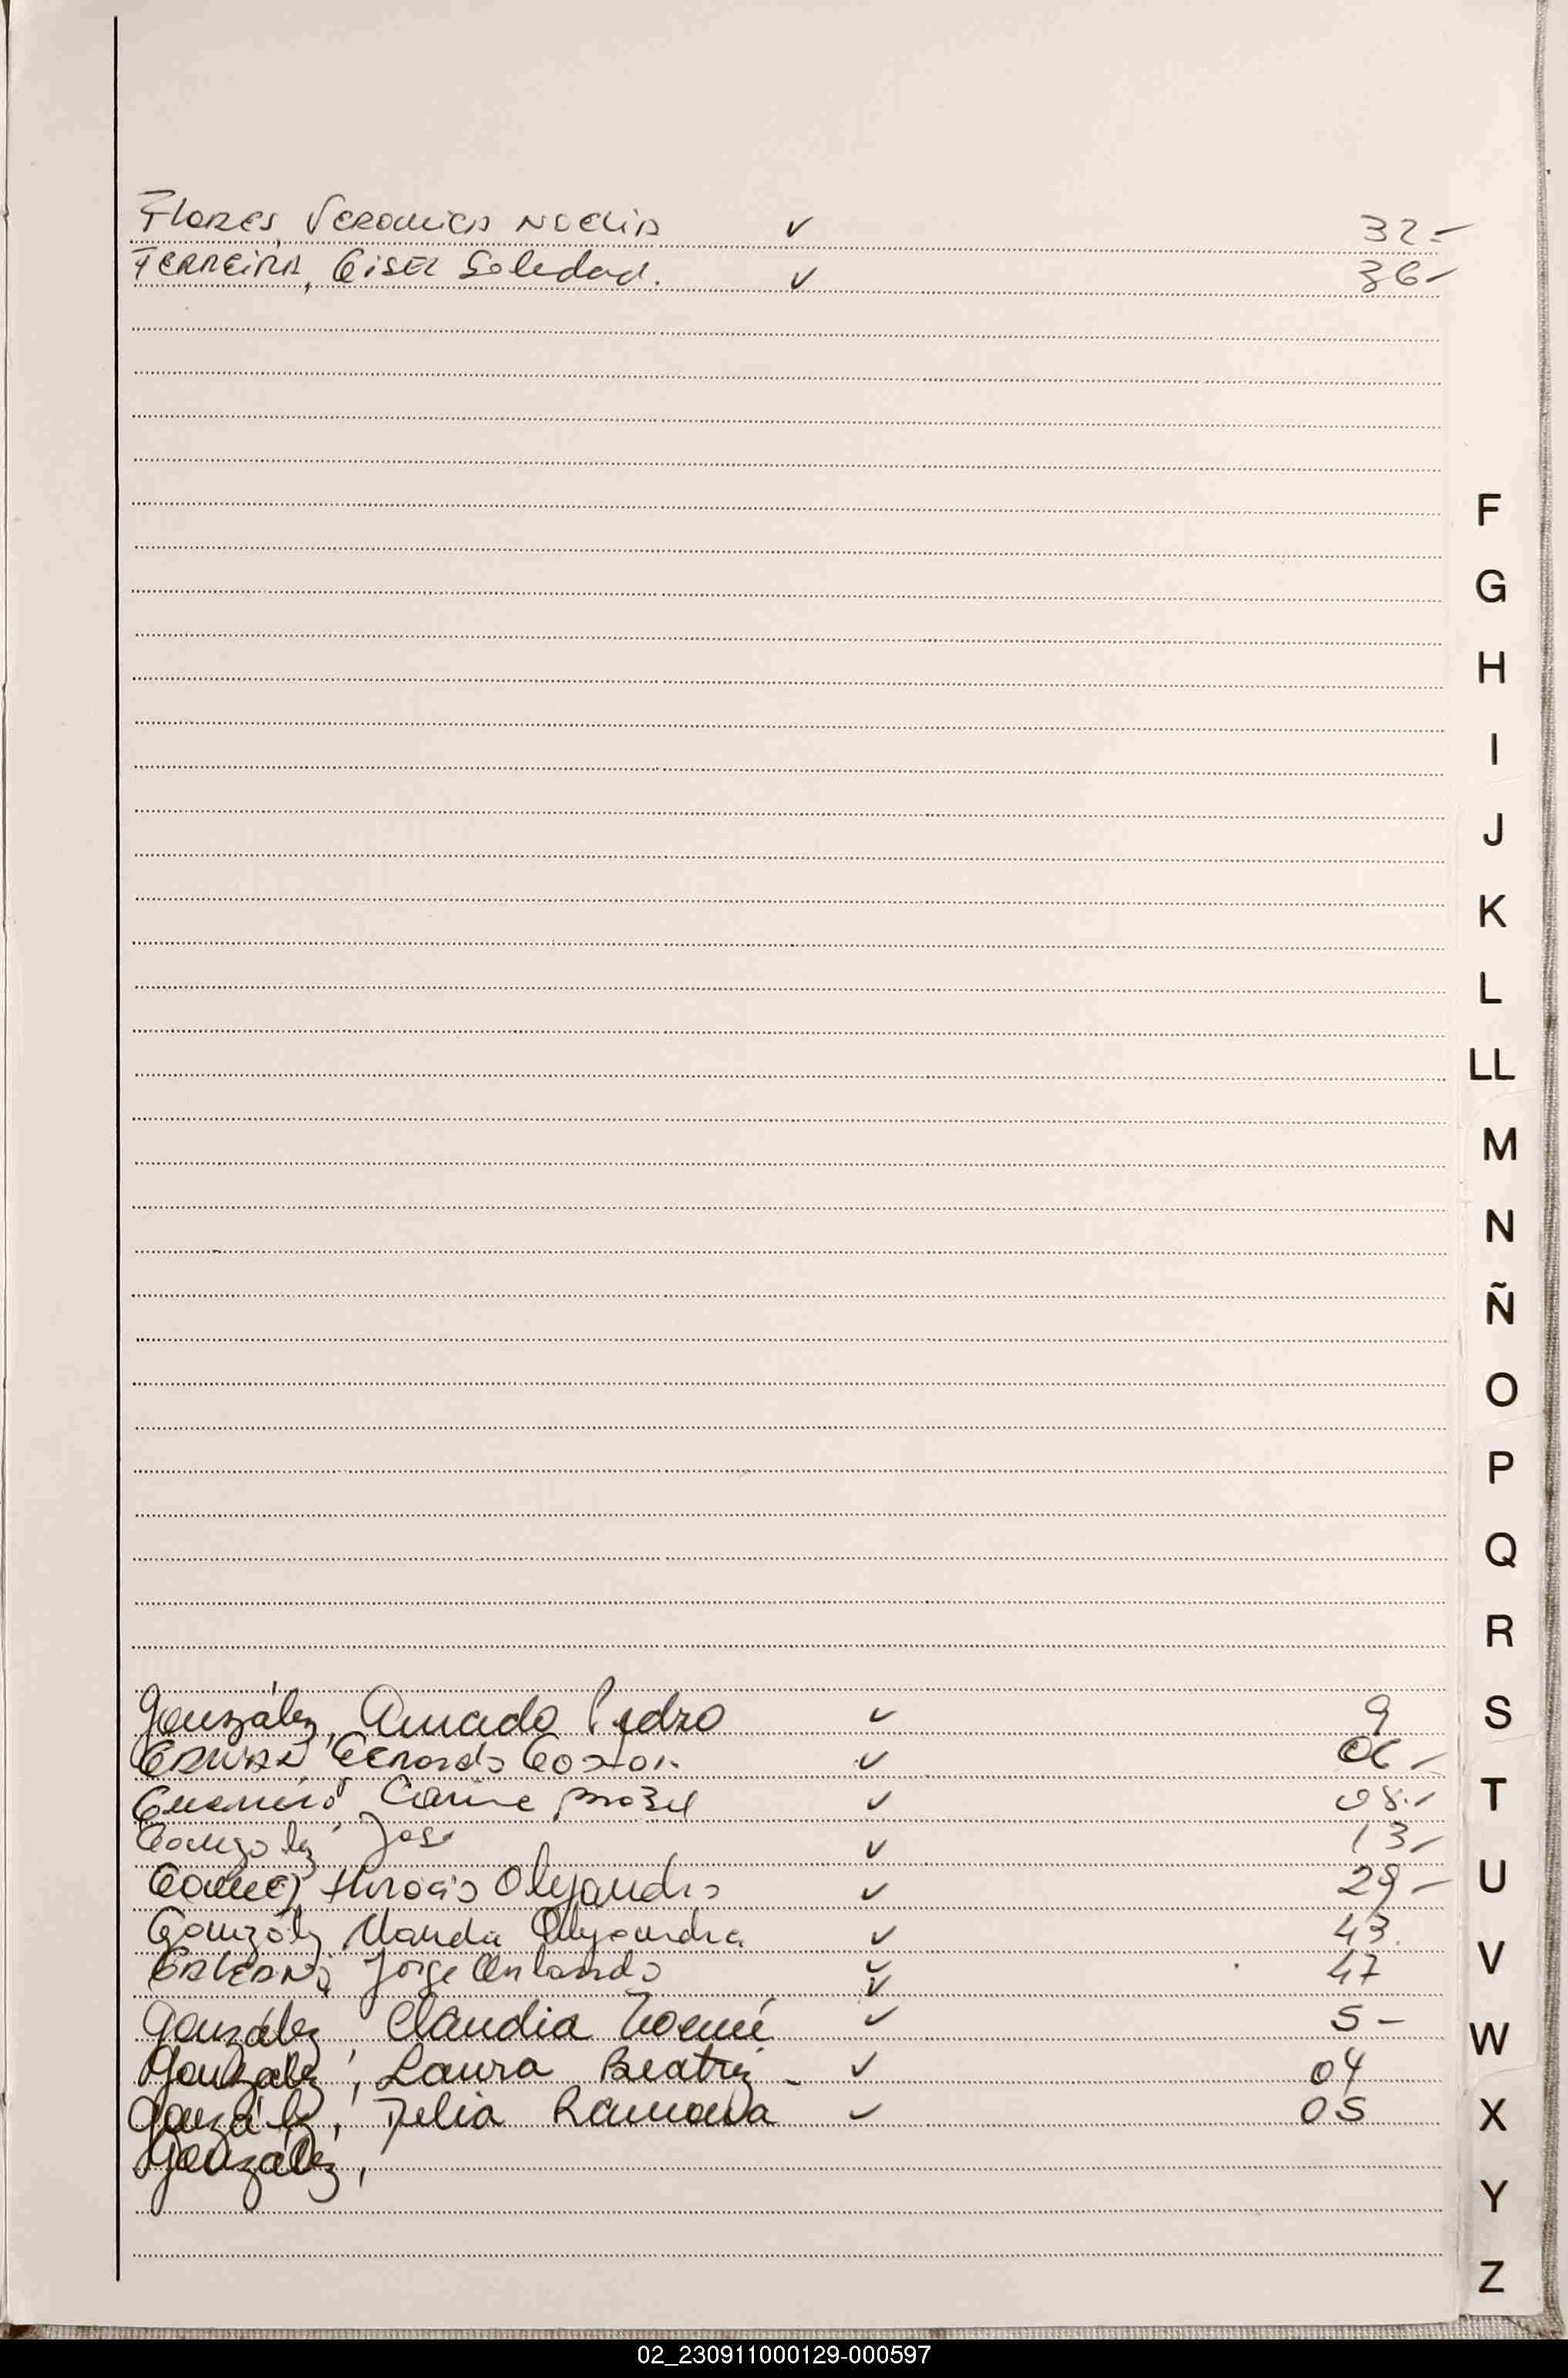 Flores, Veronica Noelia ✓ 32-
FERREIRA, Gisel Soledad. ✓ 36-
F
G
H
I
J
K
L
LL
M
N
Ñ
O
P
Q
R
González, Amado Pedro ✓ 9
S
Gerardo Gastón ✓ 06-
T
Guerrero, Carina ✓ 08.-
González, José ✓ 13-
Gomez, Horacio Alejandro ✓ 29-
U
González, Alejandra ✓ 43.
V
GALEANO, Jorge Orlando ✓ 47
González, Claudia Noemí ✓ 5-
W
González, Laura Beatriz - ✓ 04
González, Delia Ramona ✓ 05
X
González,
Y
Z
02_230911000129-000597